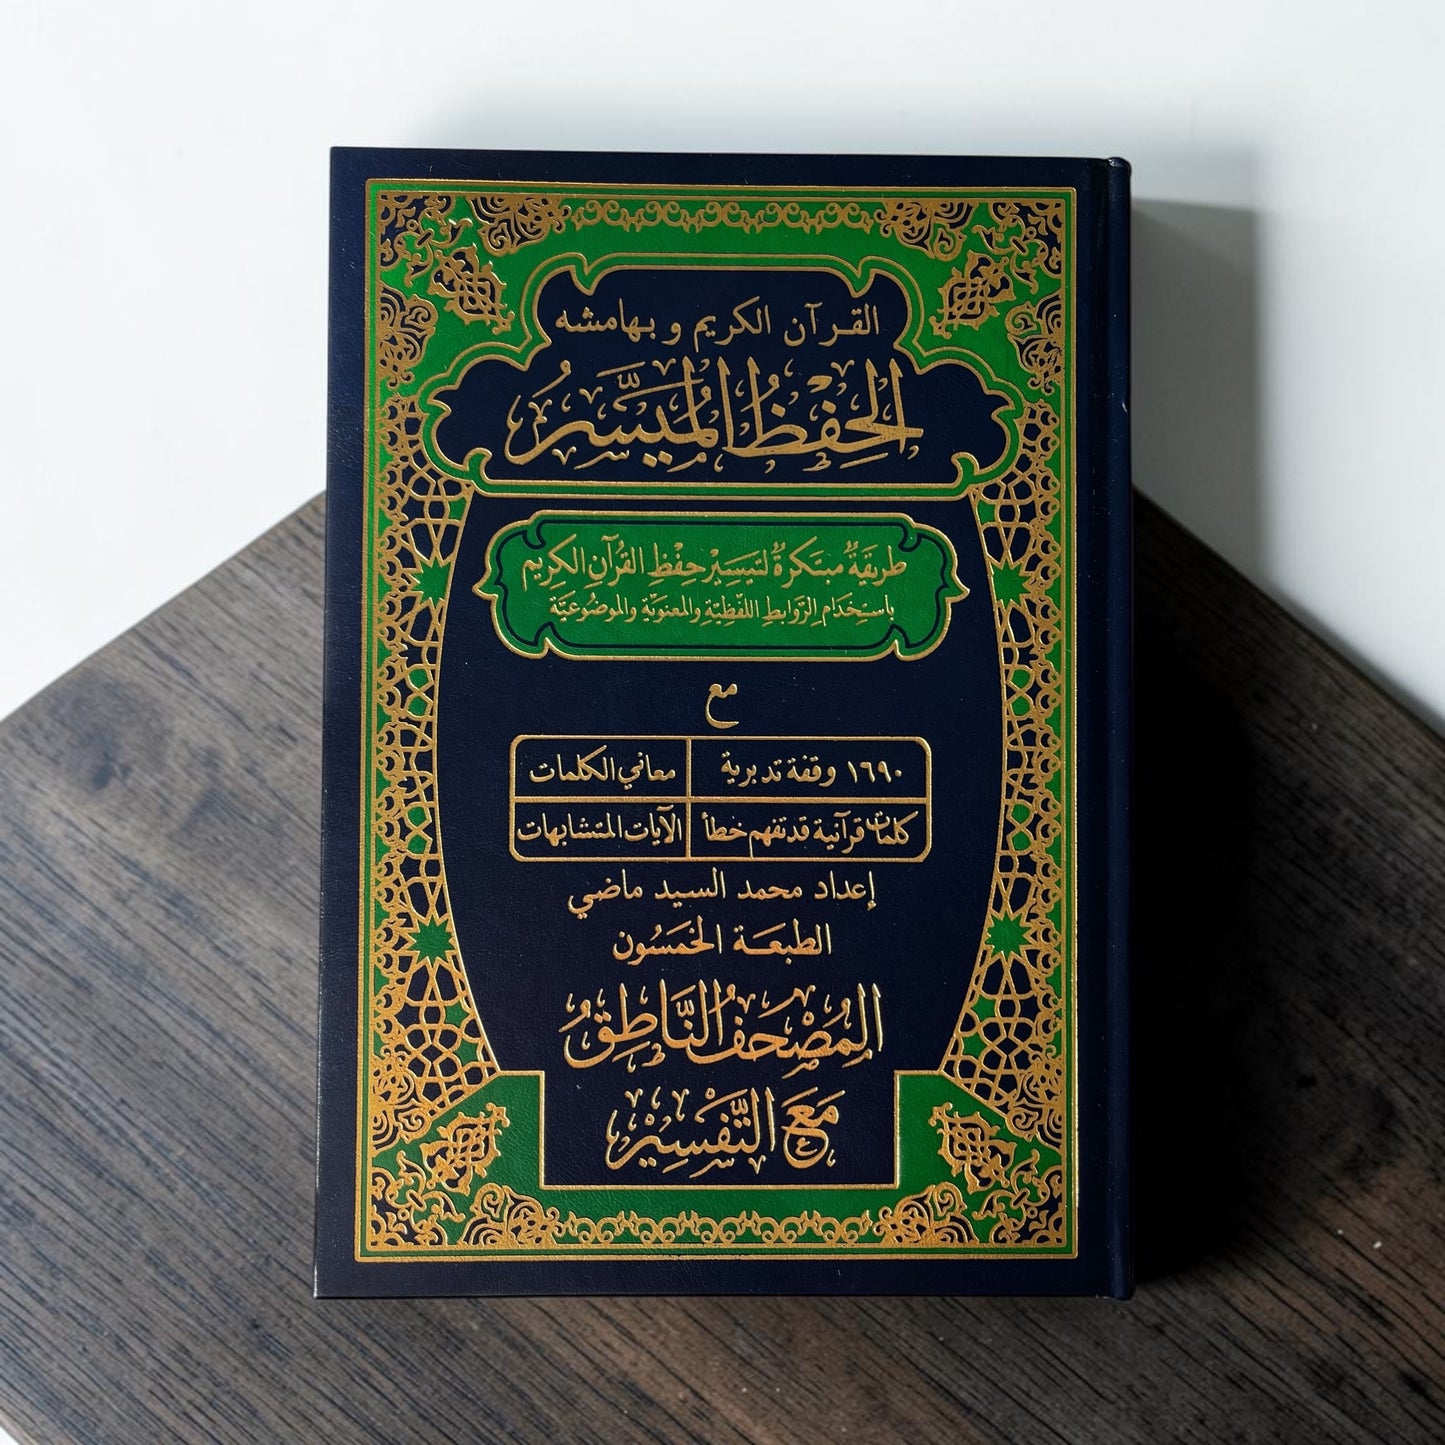 القرآن الكريم وبهامشه
الحِفْظُ المُيَسَّرُ
طريقةٌ مبتكرةٌ لتيسيْر حِفْظِ القُرآنِ الكِريم
باستخدام الرَّوابطِ اللفْظيَّةِ والمعنويَّةِ والموضُوعيَّة
مع
١٦٩٠ وقفة تدبرية معاني الكلمات
كلمات قرآنية قد تفهم خطأ الآيات المتشابهات
إعداد محمد السيد ماضي
الطبعَة الخمسُون
المُصْحَفُ النَّاطِقُ
مَعَ التَّفْسِيْرِ